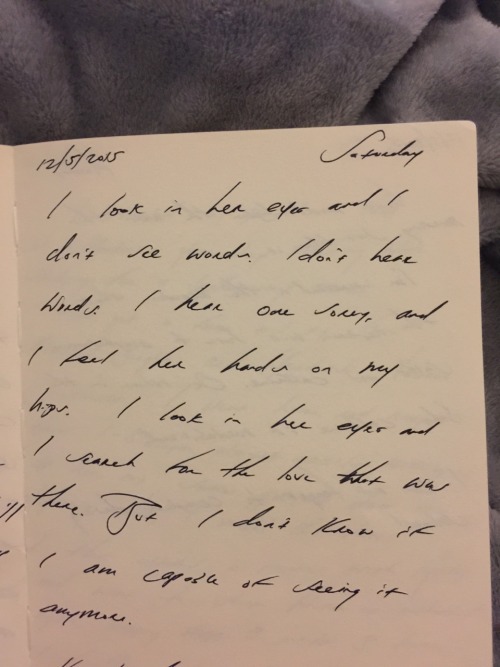 12/5/2015 Saturday
I look in her eyes and I
don't see words. I don't hear
words. I hear our song, and
I feel her hands on my
hips. I look in her eyes and
I search for the love that was
there. But I don't know if
I am capable of seeing it
anymore.